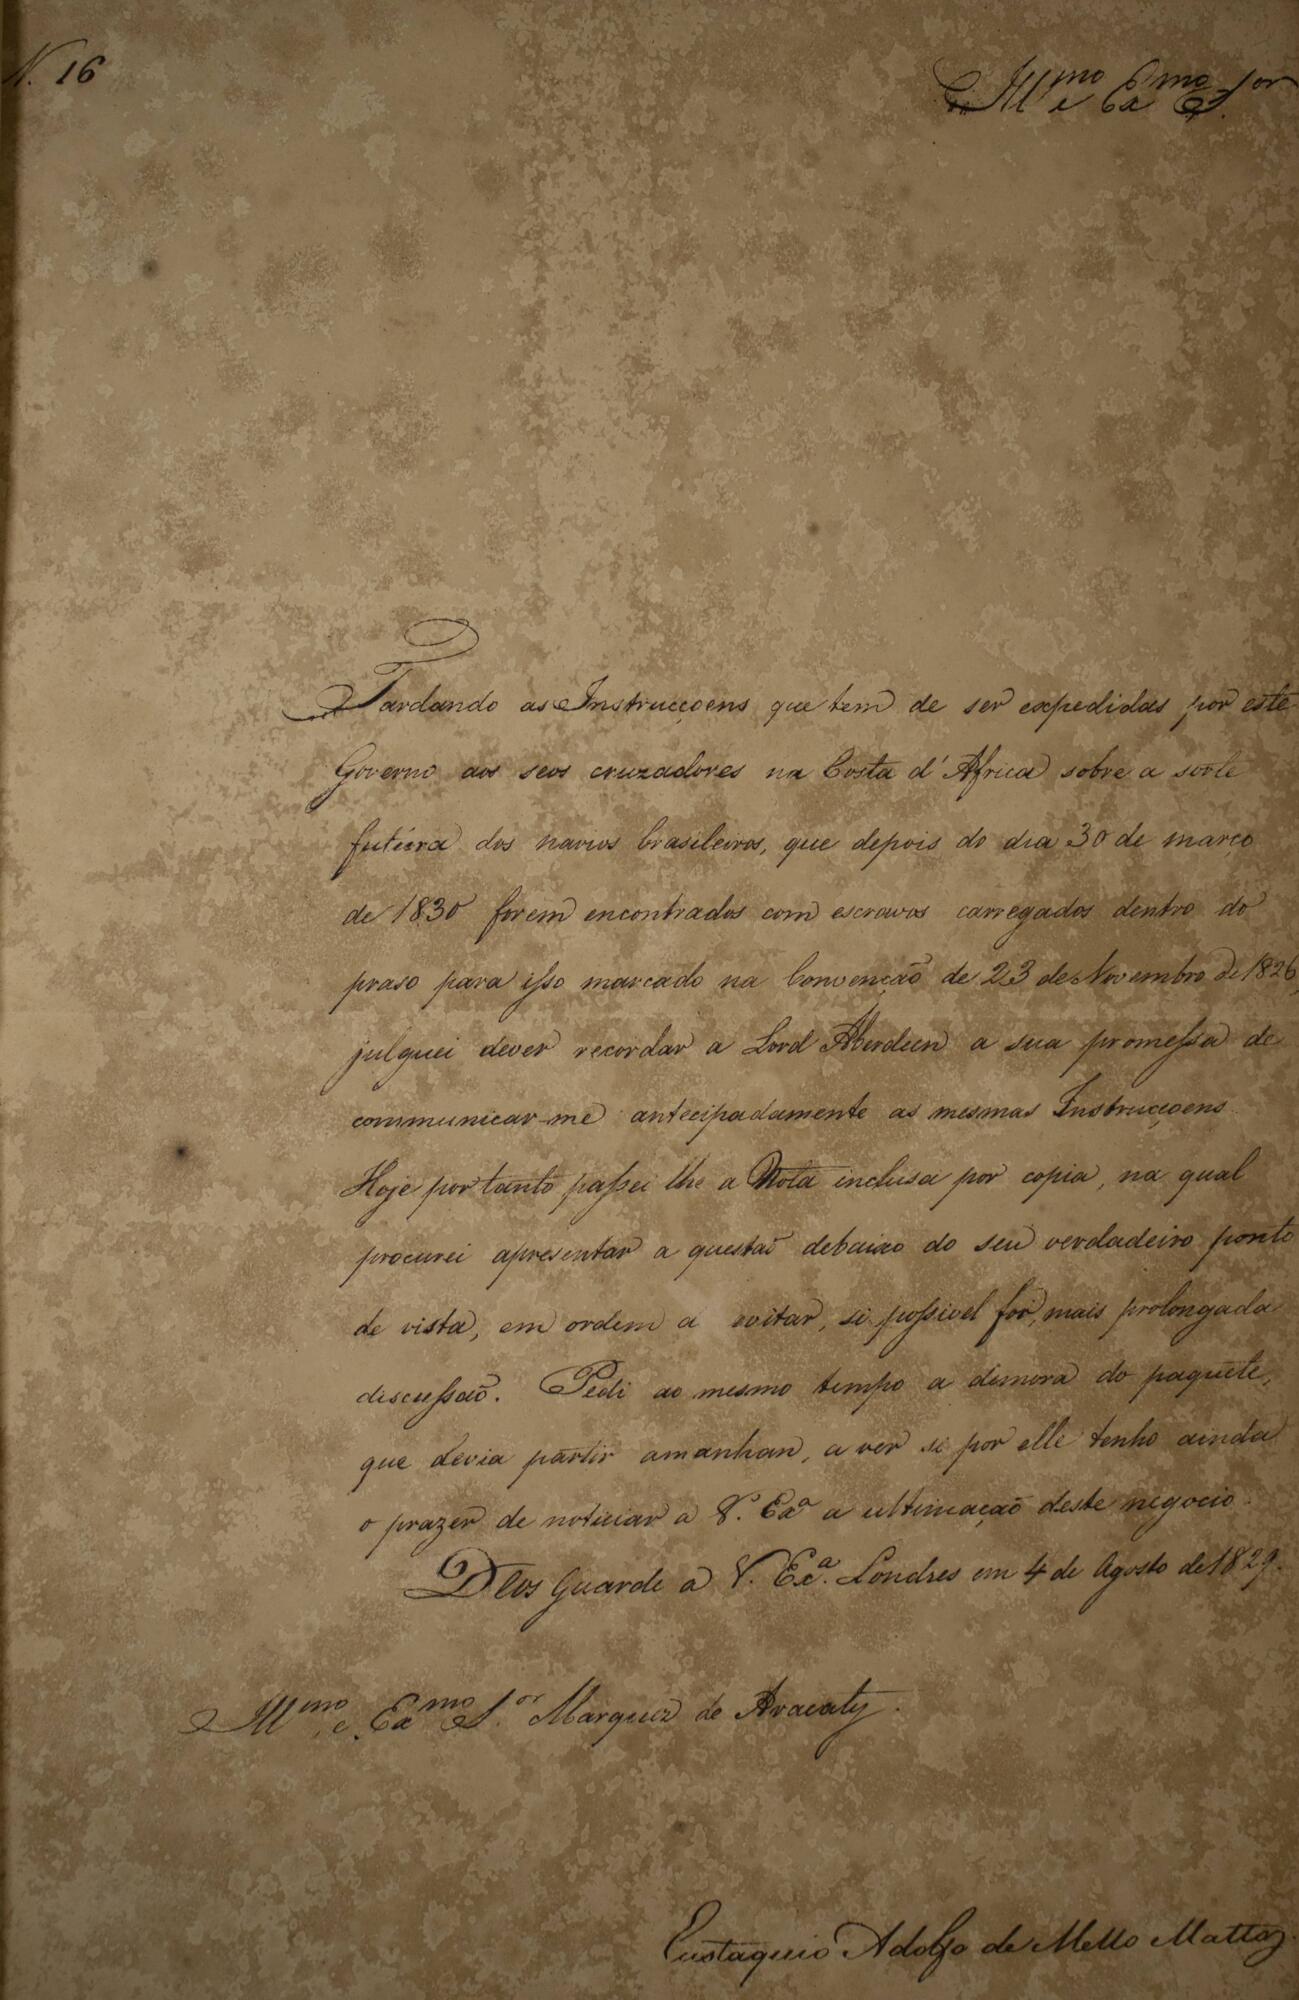 N. 16
Ill.mo e Ex.mo Sor.
Tardando as Instrucçoens que tem de ser expedidas por este
Governo aos seos cruzadores na Costa d'Africa sobre a sorte
futura dos navios brasileiros, que depois do dia 30 de março
de 1830 forem encontrados com escravos carregados dentro do
praso para isso marcado na Convenção de 23 de Novembro de 1826,
julguei dever recordar a Lord Aberdeen a sua promessa de
communicar-me antecipadamente as mesmas Instrucçoens.
Hoje por tanto passei lhe a Nota inclusa por copia, na qual
procurei apresentar a questaõ debaixo do seu verdadeiro ponto
de vista, em ordem a evitar, si possivel for, mais prolongada
discussaõ. Pedi ao mesmo tempo a demora do paquete,
que devia partir amanhan, a ver si por elle tenho ainda
o prazer de noticiar a V. Exa a ultimação deste negocio.
Deos Guarde a V. Exa. Londres em 4 de Agosto de 1829.
Ill.mo e Ex.mo S.or Marquez de Aracaty.
Eustaquio Adolfo de Mello Mattos.